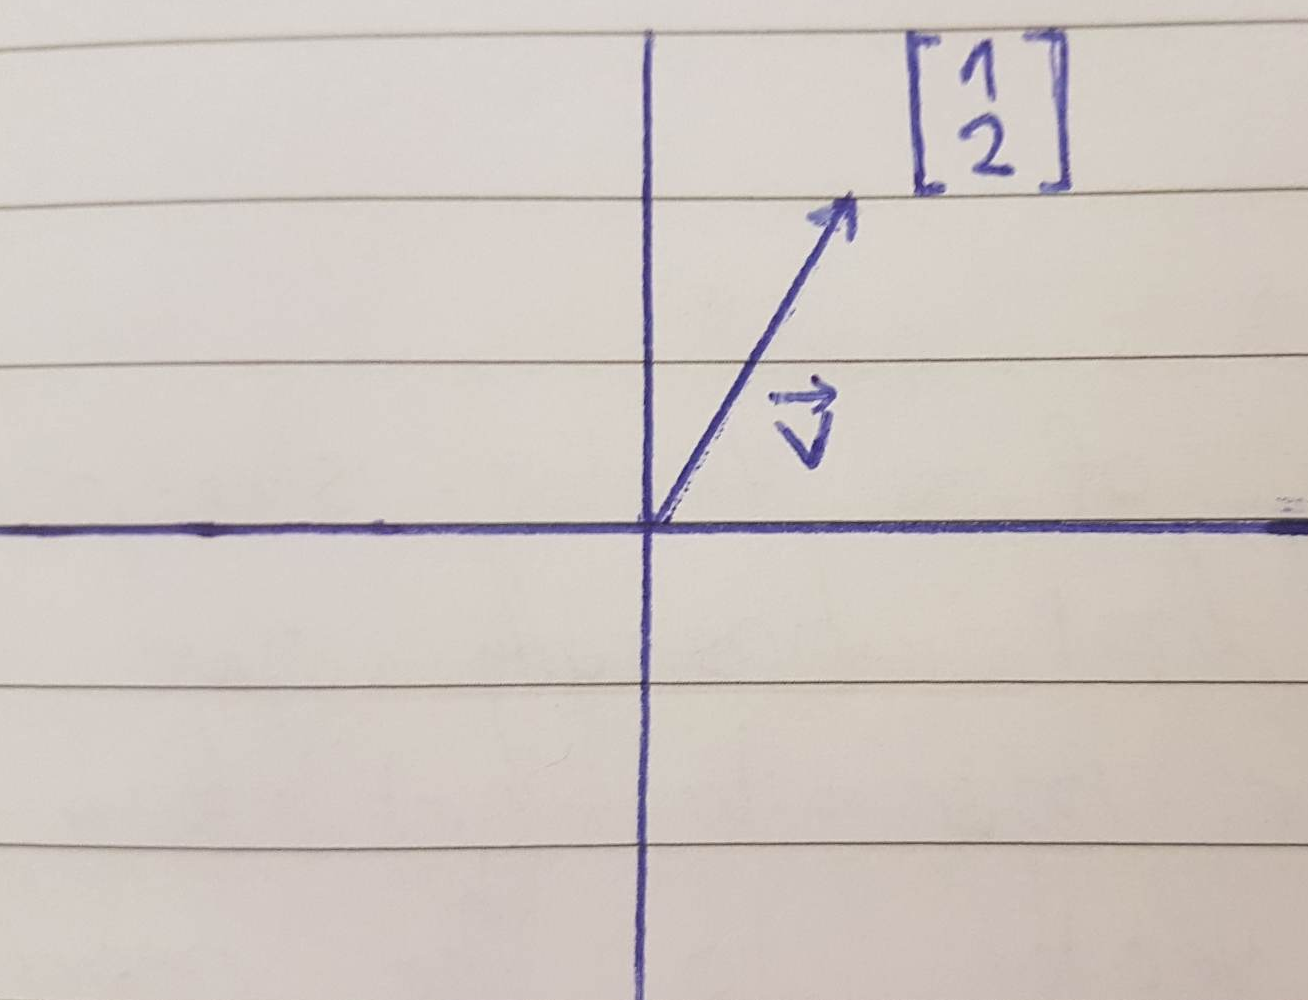 [1
2]
v⃗